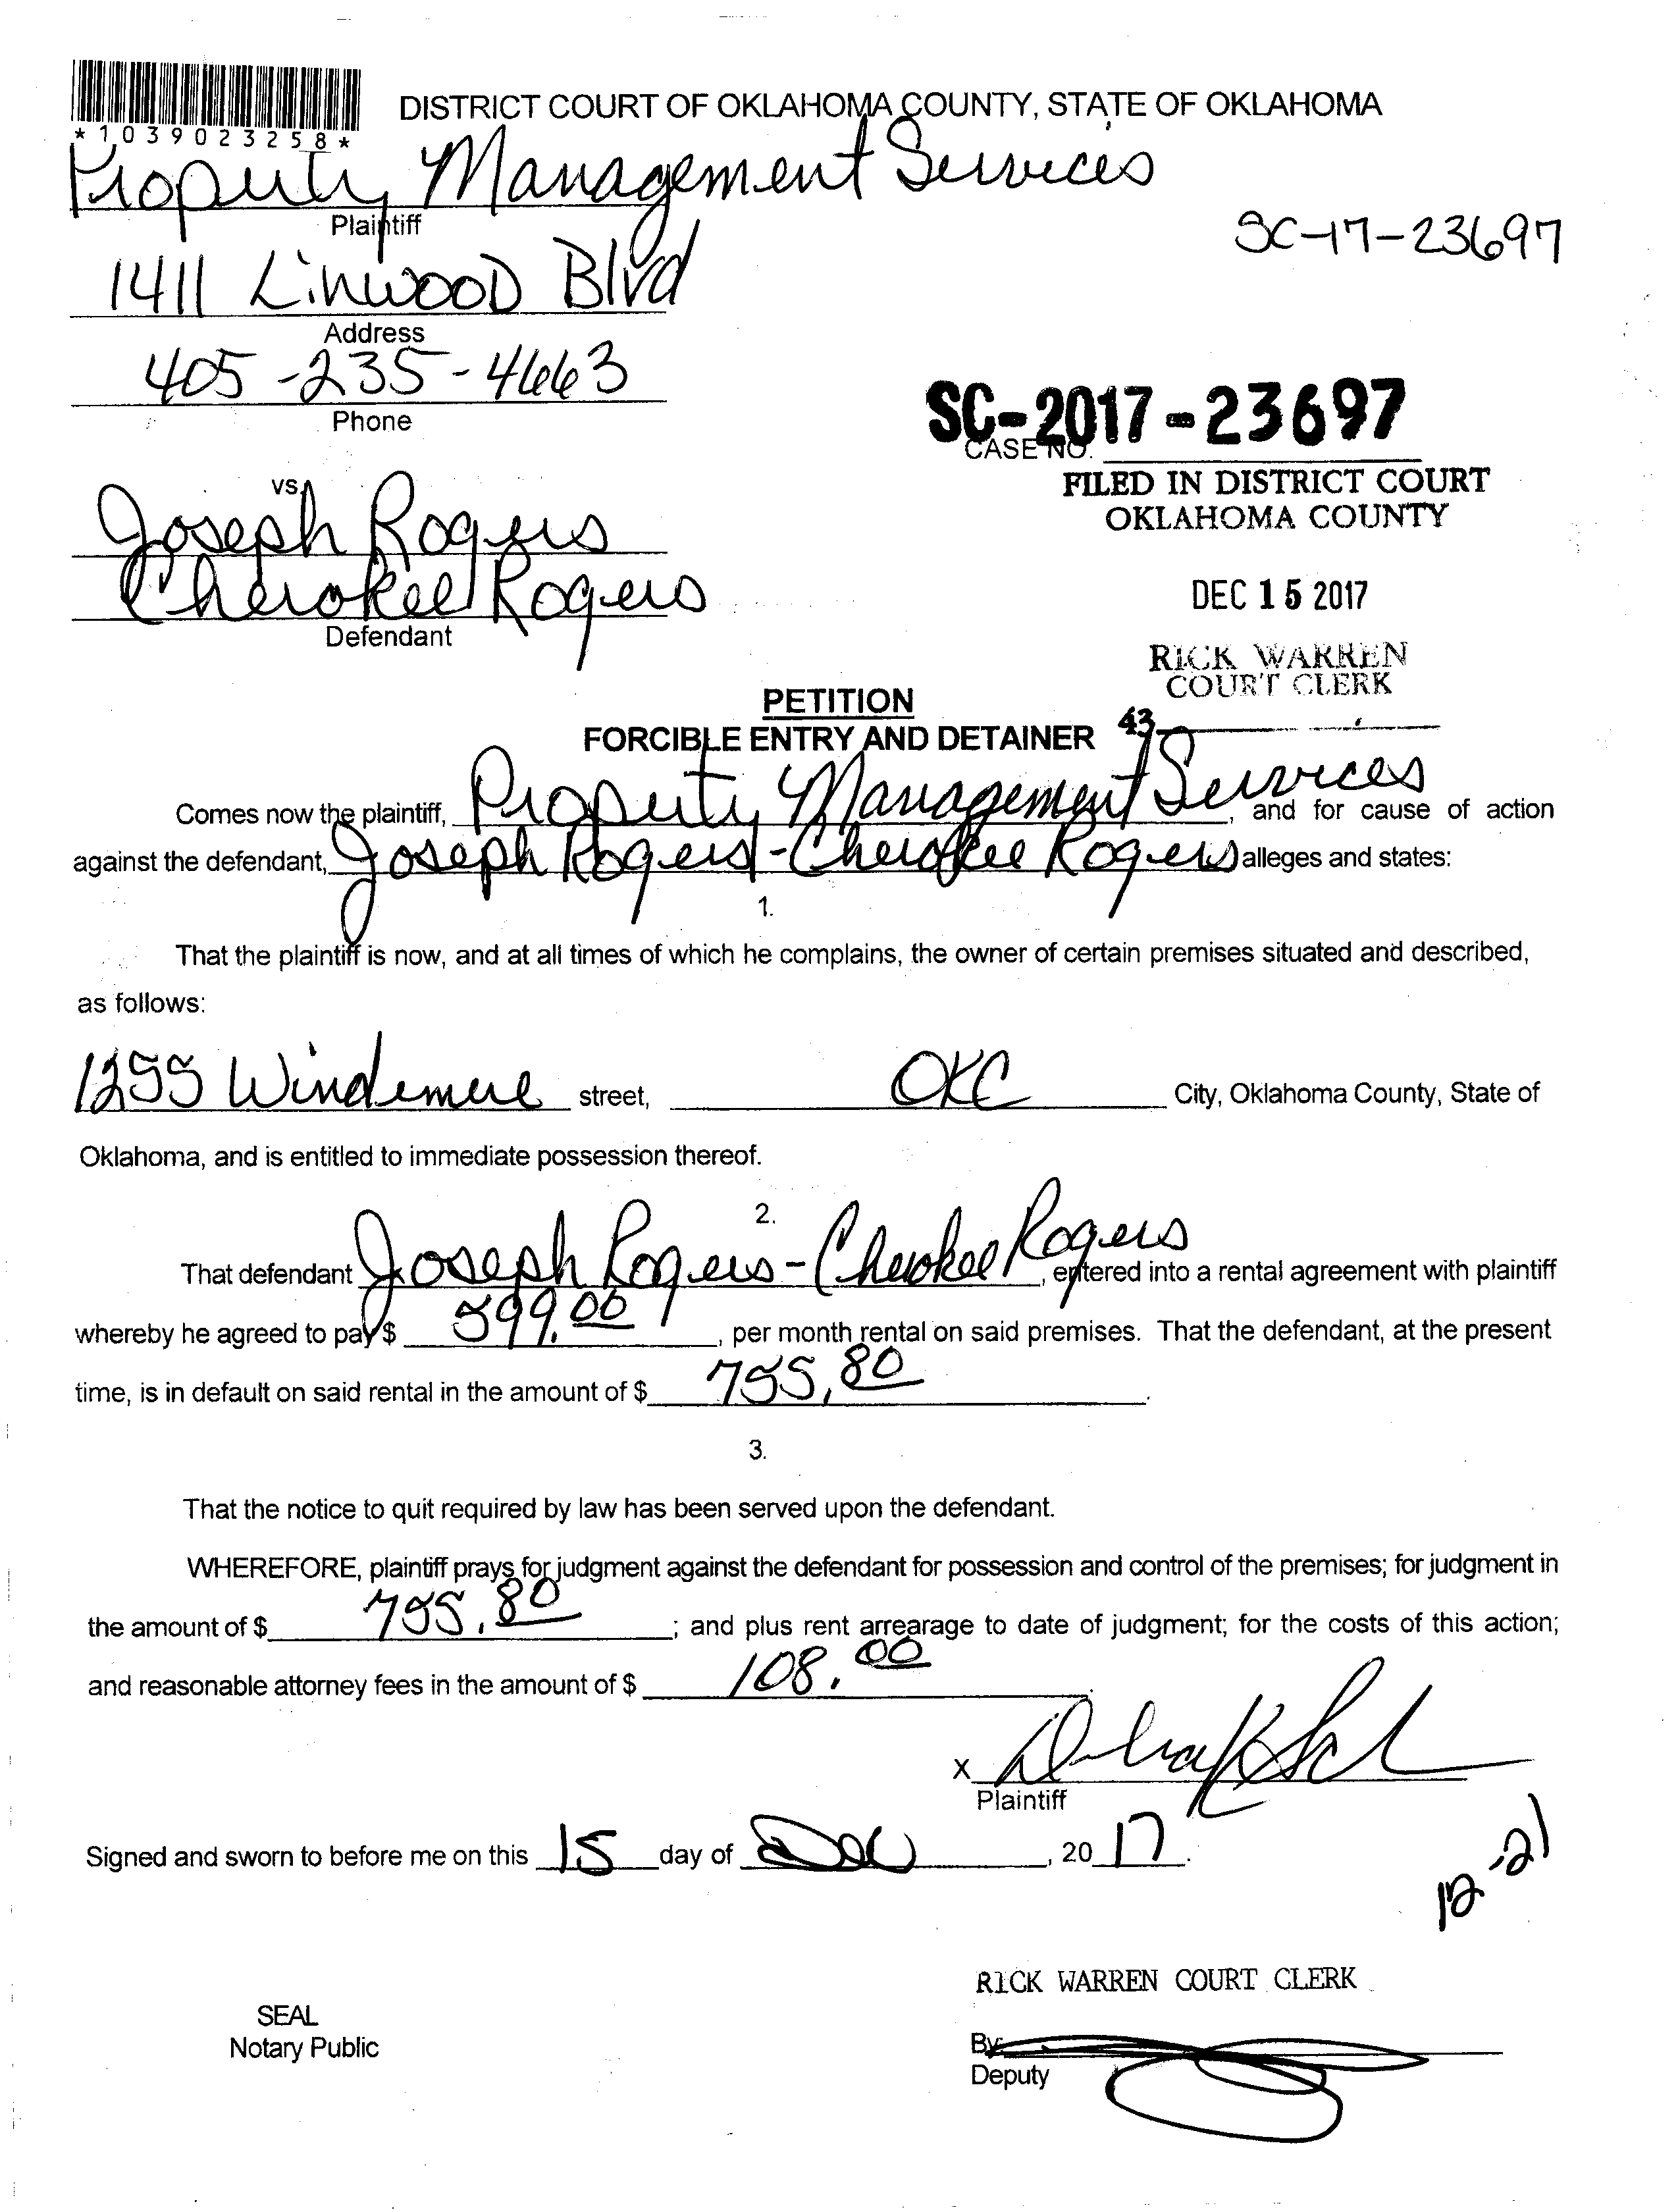 DISTRICT COURT OF OKLAHOMA COUNTY, STATE OF OKLAHOMA
*1039023258*
Property Management Services
Plaintiff
SC-17-23697
1411 Linwood Blvd
Address
405-235-4663
Phone
SC-2017-23697
CASE NO.
FILED IN DISTRICT COURT
OKLAHOMA COUNTY
vs.
Joseph Rogers
Cherokee Rogers
Defendant
DEC 15 2017
RICK WARREN
COURT CLERK
43
PETITION
FORCIBLE ENTRY AND DETAINER
Comes now the plaintiff, Property Management Services, and for cause of action
against the defendant, Joseph Rogers-Cherokee Rogers alleges and states:
1.
That the plaintiff is now, and at all times of which he complains, the owner of certain premises situated and described,
as follows:
1255 Windemere street, OKC City, Oklahoma County, State of
Oklahoma, and is entitled to immediate possession thereof.
2.
That defendant Joseph Rogers-Cherokee Rogers, entered into a rental agreement with plaintiff
whereby he agreed to pay $ 599.00, per month rental on said premises. That the defendant, at the present
time, is in default on said rental in the amount of $ 755.80.
3.
That the notice to quit required by law has been served upon the defendant.
WHEREFORE, plaintiff prays for judgment against the defendant for possession and control of the premises; for judgment in
the amount of $ 755.80; and plus rent arrearage to date of judgment; for the costs of this action;
and reasonable attorney fees in the amount of $ 108.00.
X
Plaintiff
Signed and sworn to before me on this 15 day of Dec, 2017.
12-21
RICK WARREN COURT CLERK
SEAL
Notary Public
By
Deputy